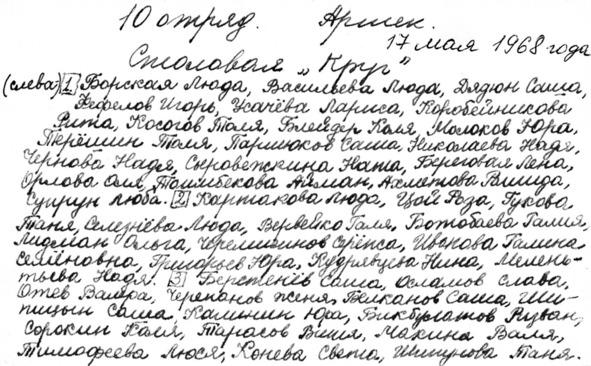 10 отряд. Артек.
17 мая 1968 года
Столовая „Круг"
(слева) 1 Борская Люда, Васильева Люда, Дядюн Саша,
Игорь, Усачёва Лариса, Коробейникова
Рита, Косогов Толя, Блейдер Коля, Молоков Юра,
Терёшин Толя, Паршюков Саша, Николаева Надя,
Чернова Надя, Сыроветкина Ната, Береговая Лена,
Орлова Оля, Тоимбекова Айман, Ахметова
Супрун Люба. 2 Картакова Люда, Цой Роза, Гукова
Таня, Селезнёва Люда, Вервейко Галя, Ботобаева Галия,
Лидман Ольга, Черемшинов Серёжа, Иванова Галина
Семёновна, Григорьев Юра, Кудрявцева Нина, Мелень-
тьева Надя. 3 Берстенёв Саша, Осламов Слава,
Отев Валера, Черепанов Женя, Велканов Саша, Ши-
пицын Саша, Калинин Юра, Бикбулатов
Сорокин Коля, Тарасов Витя, Макина Валя,
Тимофеева Люся, Конева Света, Шипунова Таня.